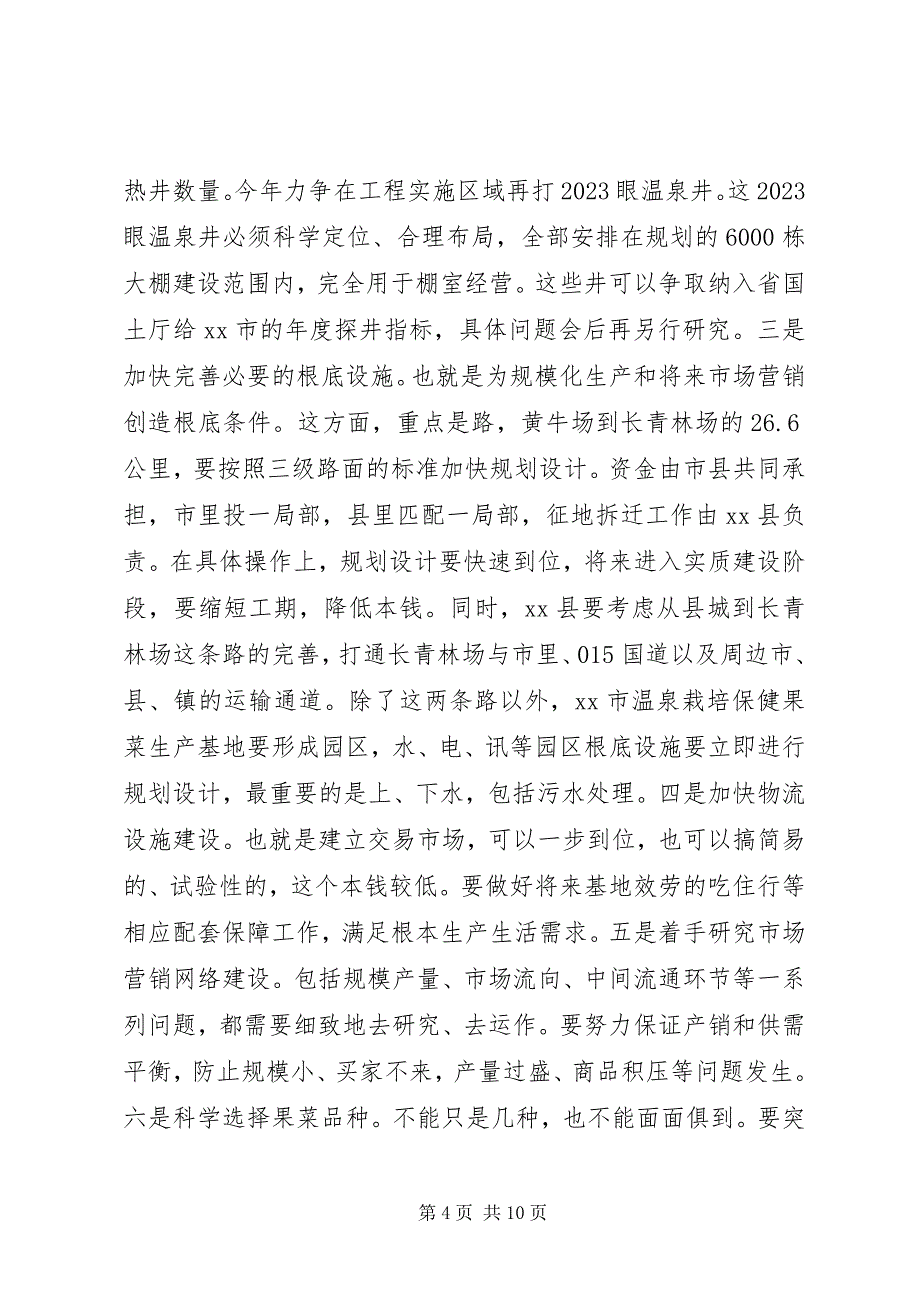 热井数量。今年力争在工程实施区域再打 2023 眼温泉井。这 2023
眼温泉井必须科学定位、合理布局，全部安排在规划的 6000 栋
大棚建设范围内，完全用于棚室经营。这些井可以争取纳入省国
土厅给 xx 市的年度探井指标，具体问题会后再另行研究。三是
加快完善必要的根底设施。也就是为规模化生产和将来市场营销
创造根底条件。这方面，重点是路，黄牛场到长青林场的 26.6
公里，要按照三级路面的标准加快规划设计。资金由市县共同承
担，市里投一局部，县里匹配一局部，征地拆迁工作由 xx 县负
责。在具体操作上，规划设计要快速到位，将来进入实质建设阶
段，要缩短工期，降低本钱。同时，xx 县要考虑从县城到长青
林场这条路的完善，打通长青林场与市里、015 国道以及周边市、
县、镇的运输通道。除了这两条路以外，xx 市温泉栽培保健果
菜生产基地要形成园区，水、电、讯等园区根底设施要立即进行
规划设计，最重要的是上、下水，包括污水处理。四是加快物流
设施建设。也就是建立交易市场，可以一步到位，也可以搞简易
的、试验性的，这个本钱较低。要做好将来基地效劳的吃住行等
相应配套保障工作，满足根本生产生活需求。五是着手研究市场
营销网络建设。包括规模产量、市场流向、中间流通环节等一系
列问题，都需要细致地去研究、去运作。要努力保证产销和供需
平衡，防止规模小、买家不来，产量过盛、商品积压等问题发生。
六是科学选择果菜品种。不能只是几种，也不能面面俱到。要突
第 4 页 共 10 页